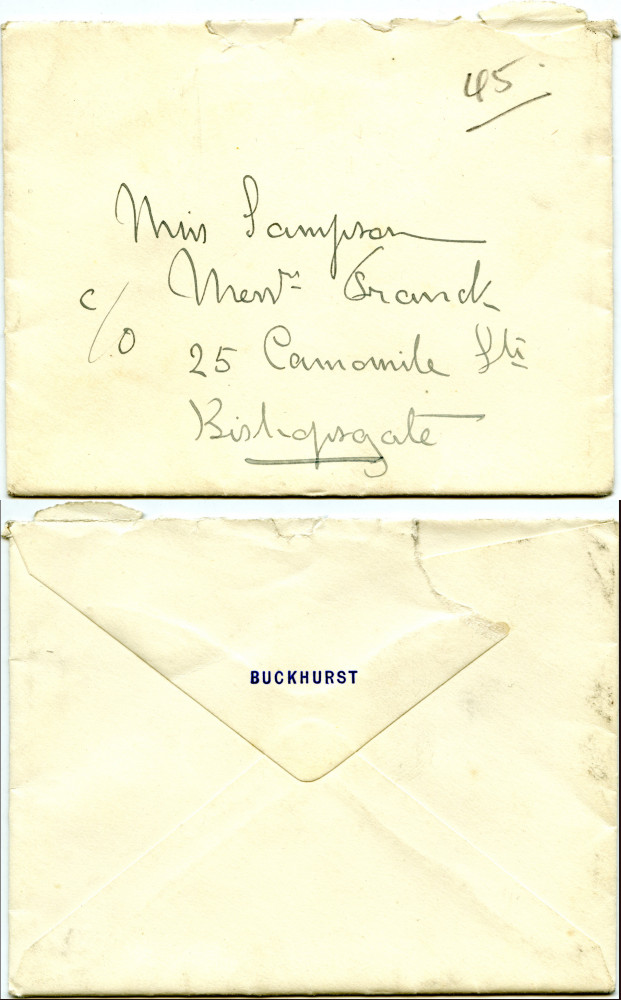 45
Miss Sampson
c/o Messrs Franck
25 Camomile St
Bishopsgate
BUCKHURST